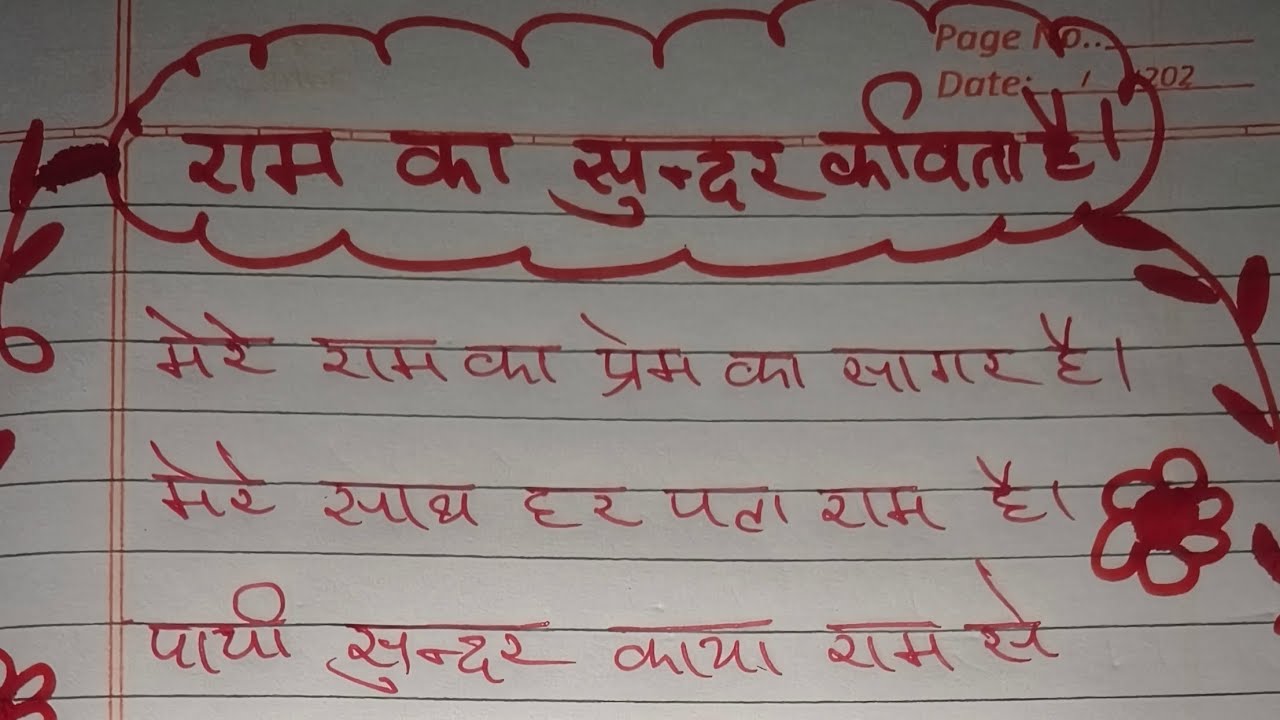 Page No..
Date: / /202
राम का सुन्दर कविता है।
मेरे राम का प्रेम का सागर है।
मेरे साथ हर पल राम है।
पायी सुन्दर काया राम से